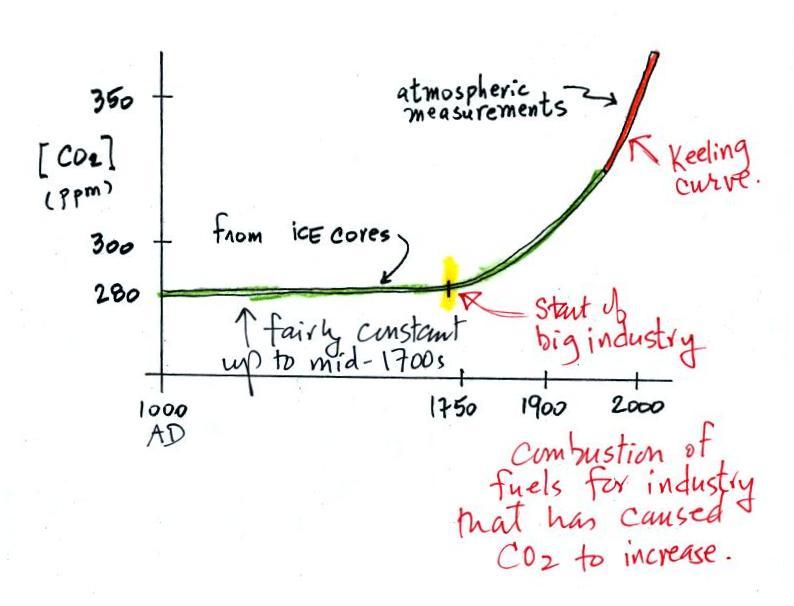 atmospheric
measurements
350
[CO2]
(ppm)
Keeling
curve.
from ICE cores
300
280
Start of
big industry
fairly constant
up to mid-1700s
1000
AD
1750
1900
2000
Combustion of
fuels for industry
that has caused
CO2 to increase.